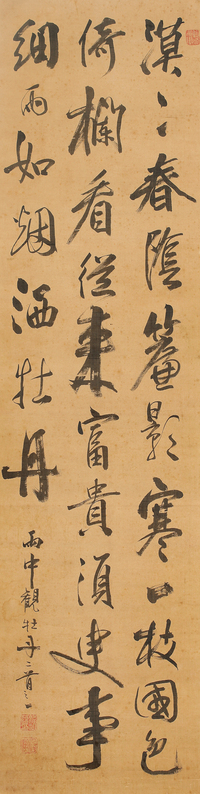 漠〻春陰簾影寒一枝國色
倚欄看從來富貴須臾事
細雨如烟洒牡丹
雨中觀牡丹二首之一